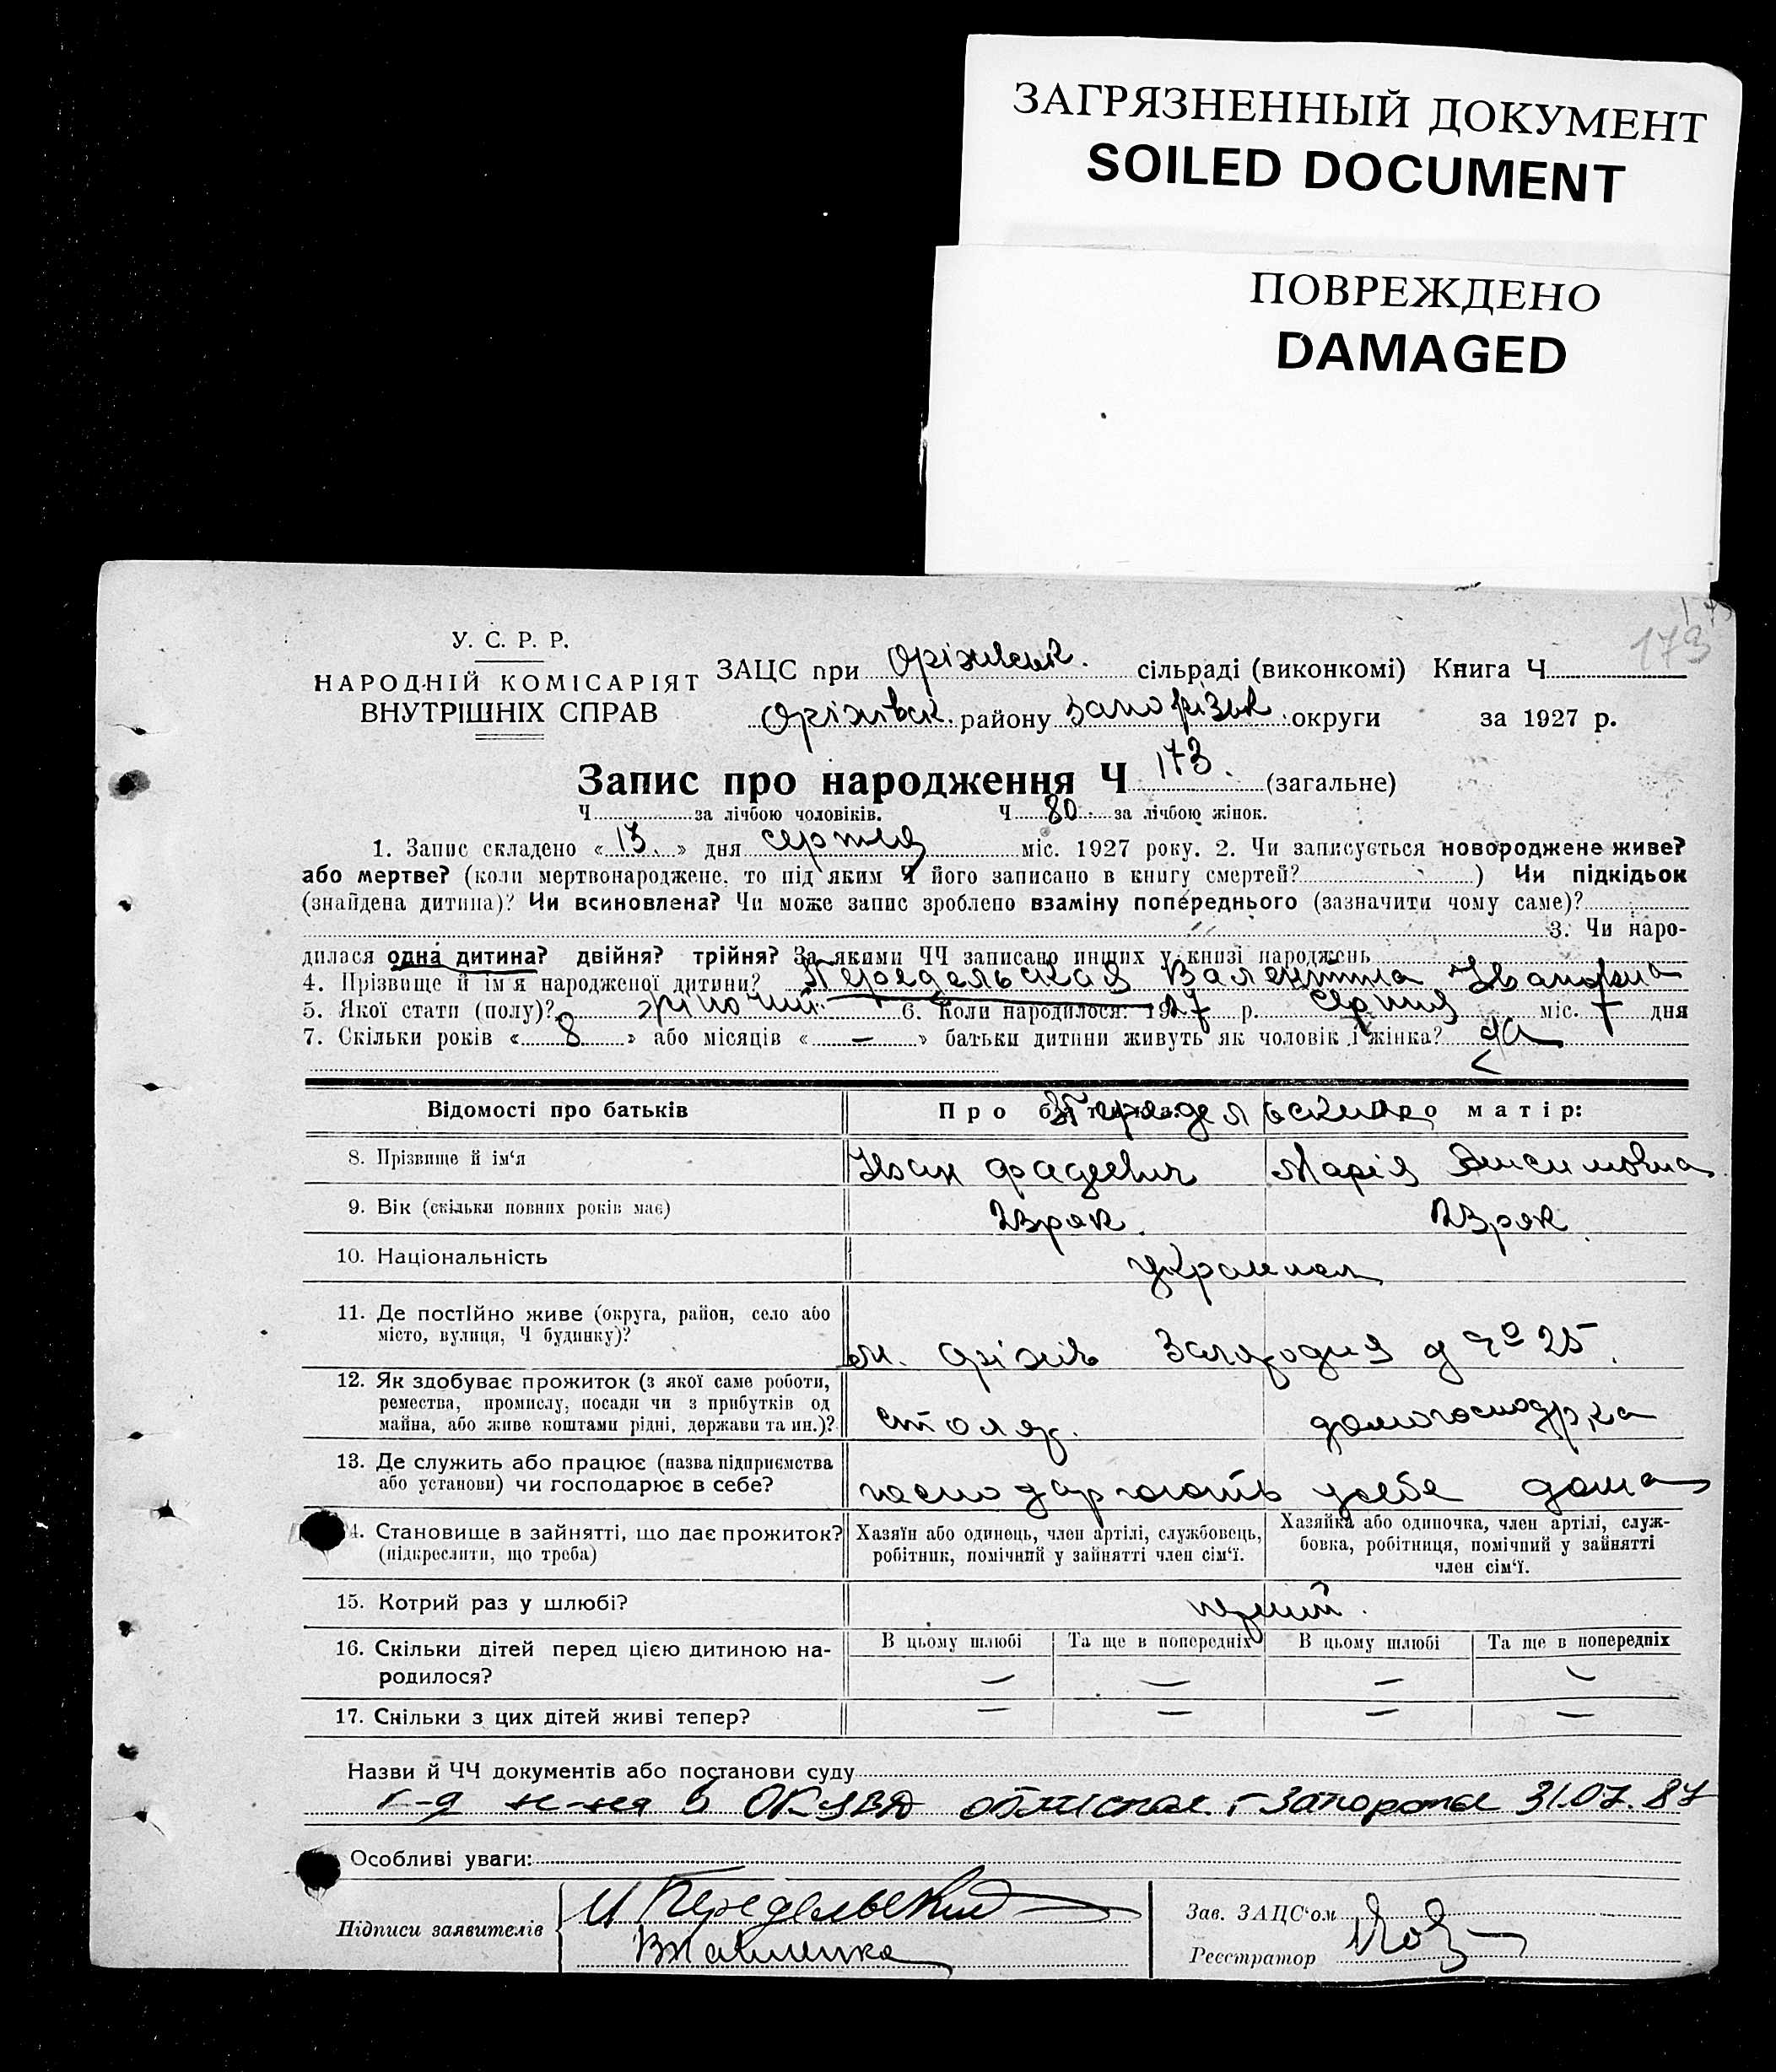 ЗАГРЯЗНЕННЫЙ ДОКУМЕНТ
SOILED DOCUMENT
ПОВРЕЖДЕНО
DAMAGED
173
У. С. Р. Р.
НАРОДНІЙ КОМІСАРІЯТ
ВНУТРІШНІХ СПРАВ
ЗАЦС при Оріхівськ. сільраді (виконкомі) Книга Ч
Оріхівськ. району Запорізьк. округи за 1927 р.
Запис про народження Ч 173. (загальне)
Ч за лічбою чоловіків. Ч 80 за лічбою жінок.
1. Запис складено « 13. » дня серпня міс. 1927 року. 2. Чи записується новороджене живе?
або мертве? (коли мертвонароджене, то під яким Ч його записано в книгу смертей? ) Чи підкідьок
(знайдена дитина)? Чи всиновлена? Чи може запис зроблено взаміну попереднього (зазначити чому саме)?
3. Чи наро-
дилася одна дитина? двійня? трійня? За якими ЧЧ записано инших у книзі народжень
4. Прізвище й ім'я народженої дитини? Передельская Валентина Івановна
5. Якої стати (полу)? жіночий. 6. Коли народилося: 1927 р. серпня міс. 7 дня
7. Скільки років « 8 » або місяців « — » батьки дитини живуть як чоловік і жінка? да
Відомості про батьків Про батька: Про матір:
Передельские
8. Прізвище й ім'я Іван Фадеевич Марія Анисимовна
9. Вік (скільки повних років має) 23 рок. 23 рок
10. Національність
11. Де постійно живе (округа, район, село або
місто, вулиця, Ч будинку)? м. Оріхів 25.
12. Як здобуває прожиток (з якої саме роботи,
ремества, промислу, посади чи з прибутків од
майна, або живе коштами рідні, держави та ин.)? столяр. домогосподарка
13. Де служить або працює (назва підприємства
або установи) чи господарює в себе? господарюють у себе дома
4. Становище в зайнятті, що дає прожиток?
(підкреслити, що треба)
Хазяїн або одинець, член артілі, службовець,
робітник, помічний у зайнятті член сім'ї.
Хазяйка або одиночка, член артілі, служ-
бовка, робітниця, помічний у зайнятті
член сім'ї.
15. Котрий раз у шлюбі? перший.
16. Скільки дітей перед цією дитиною на-
родилося?
В цьому шлюбі Та ще в попередніх В цьому шлюбі Та ще в попередніх
— — — —
17. Скільки з цих дітей живі тепер? — — — —
Назви й ЧЧ документів або постанови суду
в г. Запорожье 31.07.87
Особливі уваги:
Підписи заявителів И Передельский
Зав. ЗАЦС'ом
Реєстратор